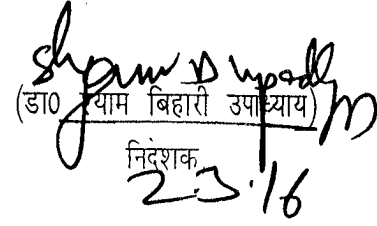 Shyam B Upadhy
(डा० श्याम बिहारी उपाध्याय)
निदेशक
2.3.16